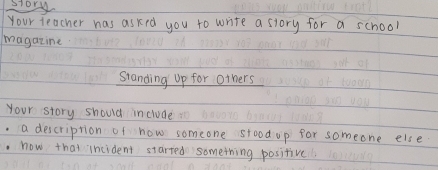 Story
Your teacher has asked you to write a story for a school
magazine.
Standing Up for Others
Your story should include
• a description of how someone stood up for someone else
• how that incident started something positive.